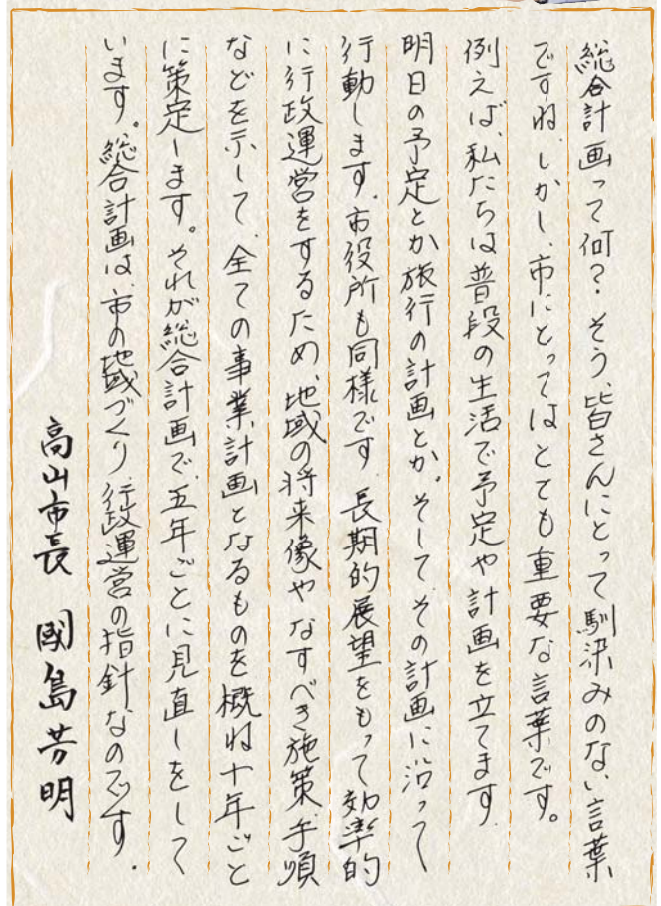 総合計画って何？そう、皆さんにとって馴染みのない言葉
ですね。しかし、市にとってはとても重要な言葉です。
例えば、私たちは普段の生活で予定や計画を立てます。
明日の予定とか旅行の計画とか。そして、その計画に沿って
行動します。市役所も同様です。長期的展望をもって効率的
に行政運営をするため、地域の将来像やなすべき施策、手順
などを示して、全ての事業、計画となるものを概ね十年ごと
に策定します。それが総合計画で、五年ごとに見直しをして
います。総合計画は、市の地域づくり、行政運営の指針なのです。
高山市長 國島芳明